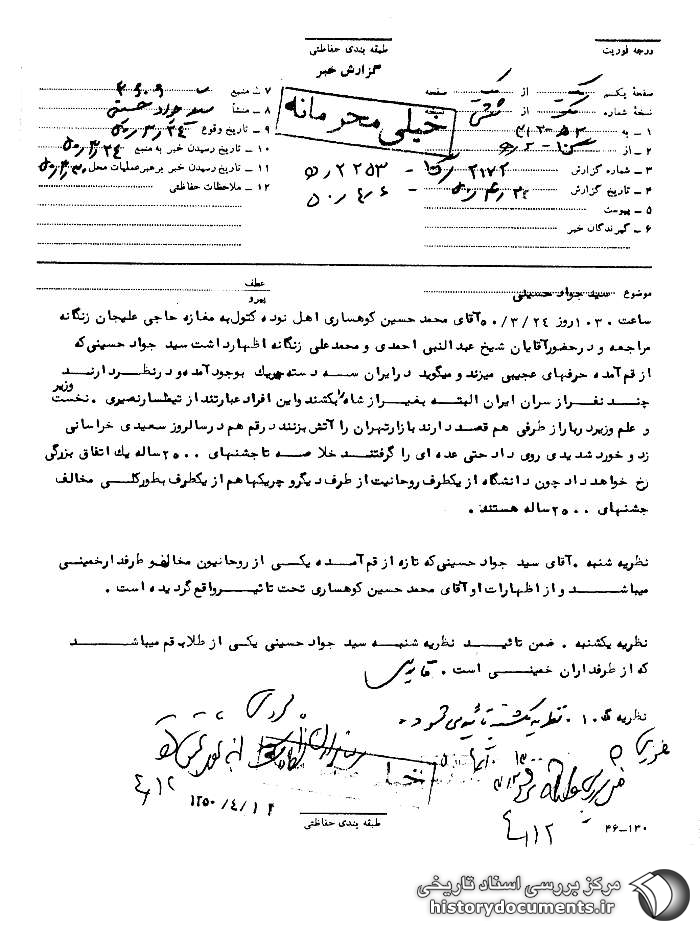 طبقه بندی حفاظتی
درجه فوریت
گزارش خبر
خیلی محرمانه
صفحه یکم یک از یک صفحه
نسخه شماره یک از شش نسخه
۱ - به
۲ - از
۳ - شماره گزارش
۴ - تاریخ گزارش
۵ - پیوست
۶ - گیرندگان خبر
۷ - منبع
۸ - منشأ سید جواد حسینی
۹ - تاریخ وقوع ۵۰/۳/۲۴
۱۰ - تاریخ رسیدن خبر به منبع ۵۰/۳/۲۴
۱۱ - تاریخ رسیدن خبر برهبر عملیات محل
۱۲ - ملاحظات حفاظتی
موضوع سید جواد حسینی
عطف
پیرو
ساعت ۱۰۳۰ روز ۵۰/۳/۲۴ آقای محمد حسین کوهساری اهل نوده کتول به مغازه حاجی علیجان زنگانه
مراجعه و در حضور آقایان شیخ عبدالنبی احمدی و محمد علی زنگانه اظهار داشت سید جواد حسینی که
از قم آمده حرفهای عجیبی میزند و میگوید در ایران سه دسته چریک بوجود آمده و در نظر دارند
چند نفر از سران ایران البته بغیر از شاه را بکشند و این افراد عبارتند از تیمسار نصیری . نخست وزیر
و علم وزیر دربار از طرفی هم قصد دارند بازار تهران را آتش بزنند در قم هم در سالروز سعیدی خراسانی
زد و خورد شدیدی روی داد حتی عده ای را گرفتند خلاصه تا جشنهای ۲۵۰۰ ساله یک اتفاق بزرگی
رخ خواهد داد چون دانشگاه از یکطرف روحانیت از طرف دیگر و چریکها هم از یکطرف بطور کلی مخالف
جشنهای ۲۵۰۰ ساله هستند .
نظریه شنبه . آقای سید جواد حسینی که تازه از قم آمده یکی از روحانیون مخالف و طرفدار خمینی
میباشد و از اظهارات او آقای محمد حسین کوهساری تحت تاثیر واقع گردیده است .
نظریه یکشنبه . ضمن تائید نظریه شنبه سید جواد حسینی یکی از طلاب قم میباشد
که از طرفداران خمینی است .
نظریه ۱۰ . نظریه یکشنبه تائید می شود .
۴/۱۲
۱۲۵۰/۴/۱۴
۴/۱۲
طبقه بندی حفاظتی
۴۶-۱۳۰
مرکز بررسی اسناد تاریخی
historydocuments.ir